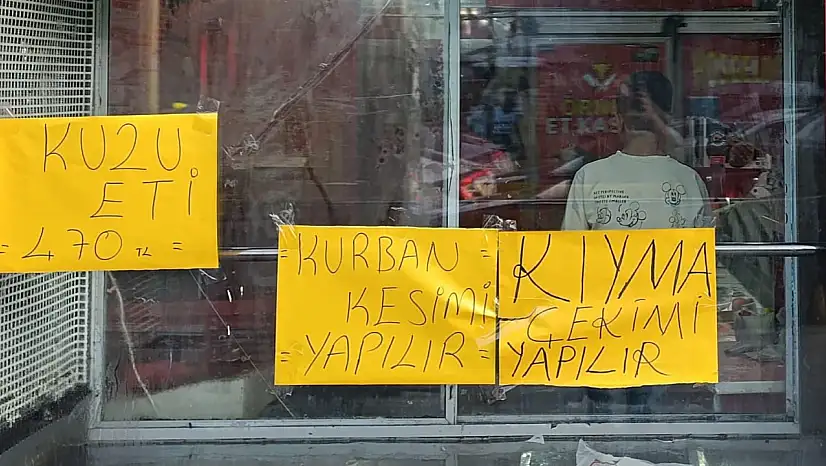 KUZU
ETİ
= 470 TL =
= KURBAN =
KESİMİ
= YAPILIR =
KIYMA
ÇEKİMİ
YAPILIR